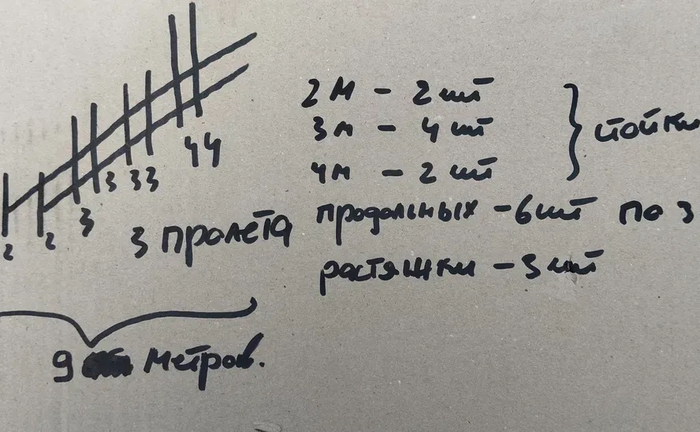 2м - 2шт
3м - 4шт
4м - 2шт
стойки
продольных - 6шт по 3
растяжки - 3шт
2 2 3 3 3 3 4 4
3 пролёта
9 метров.